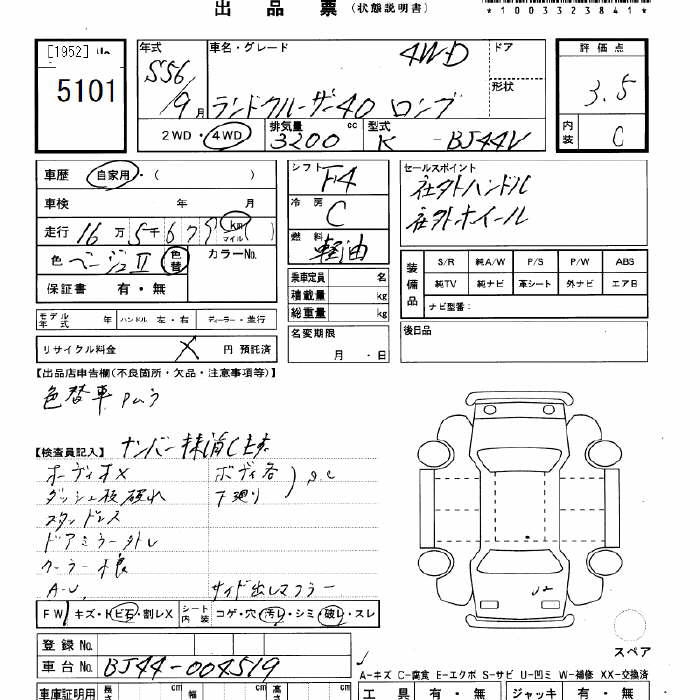 出品票（状態説明書）
*1003323841*
[1952]
5101
年式 車名・グレード 4WD ドア
S56/9月 ランドクルーザー40 ロング 形状
2WD・4WD 排気量 3200 cc 型式 K - BJ44V
評価点
3.5
内装 C
車歴 自家用・（　）
車検 年 月
走行 16万5千67 km マイル
色 ベージュII 色替 カラーNo.
保証書 有・無
シフト F4
冷房 C
燃料 軽油
乗車定員 名
積載量 kg
総重量 kg
セールスポイント
社外ハンドル
社外ホイール
装備品 S/R 純A/W P/S P/W ABS
純TV 純ナビ 革シート 外ナビ エアB
ナビ型番：
モデル年式 年 ハンドル 左・右 ディーラー・並行
リサイクル料金 円 預託済
名変期限
月 ・日
後日品
【出品店申告欄(不良箇所・欠品・注意事項等)】
色替車
【検査員記入】 ナンバー抹消します
オーディオX ボディ各
ダッシュ板破れ 下廻り
ドアミラー外レ
クーラー不良
サイド出しマフラー
FW キズ・ト ビ石・割レX シート内装 コゲ・穴・汚レ・シミ・破レ・スレ
スペア
登録 No.
車台 No. BJ44-004519
A-キズ C-腐食 E-エクボ S-サビ U-凹ミ W-補修 XX-交換済
車庫証明用 長さ cm 幅 cm 高さ cm
工具 有・無 ジャッキ 有・無